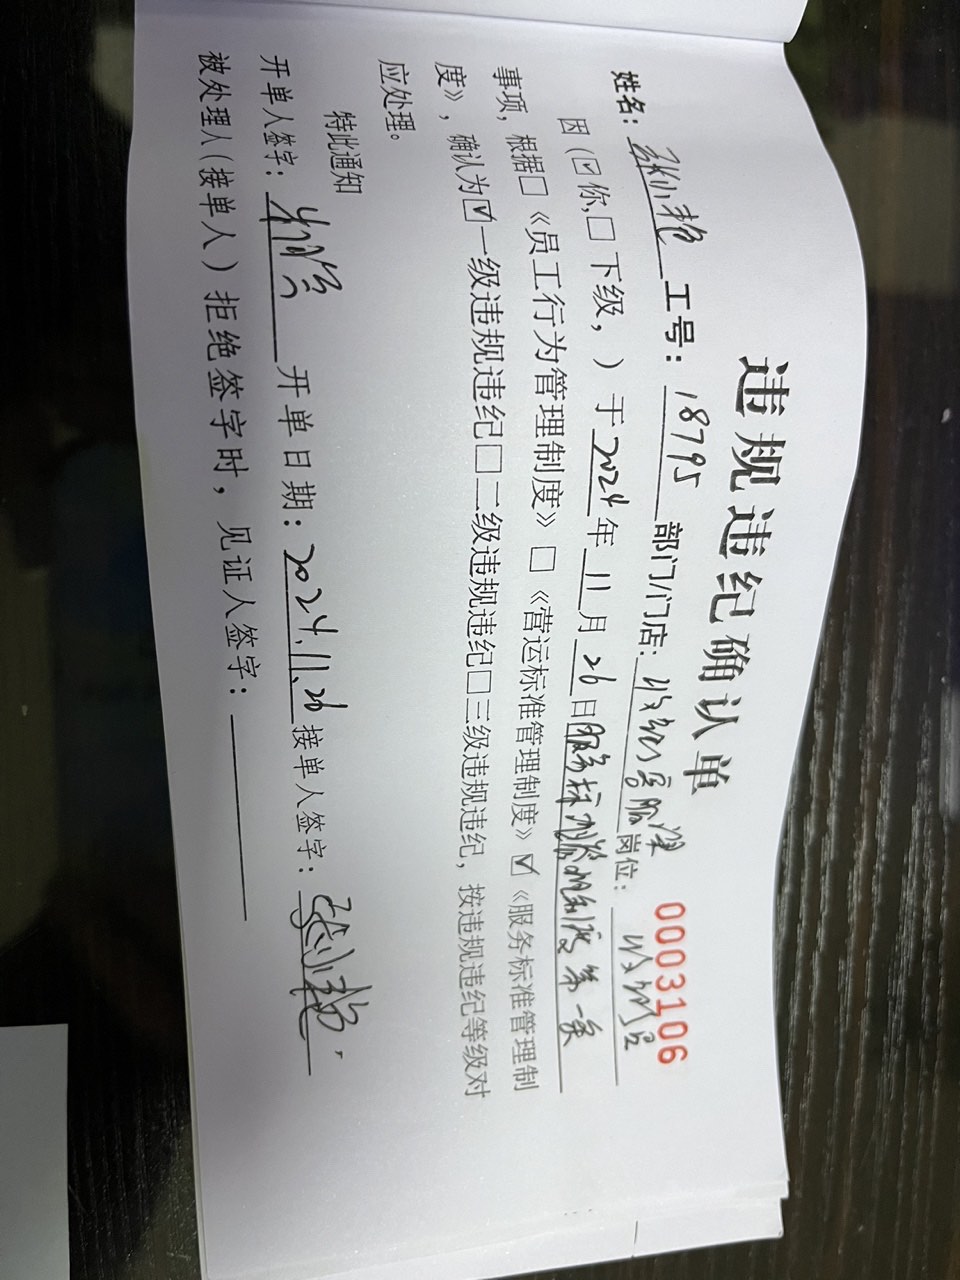 违规违纪确认单
0003106
姓名：张小艳 工号：18795 部门/门店： 岗位：
因（☑你，☐下级，）于2024年11月26日服务标准管理制度第一条
事项，根据☐《员工行为管理制度》☐《营运标准管理制度》☑《服务标准管理制
度》，确认为☑一级违规违纪☐二级违规违纪☐三级违规违纪，按违规违纪等级对
应处理。
特此通知
开单人签字： 开单日期：2024.11.26 接单人签字：张小艳
被处理人（接单人）拒绝签字时，见证人签字：